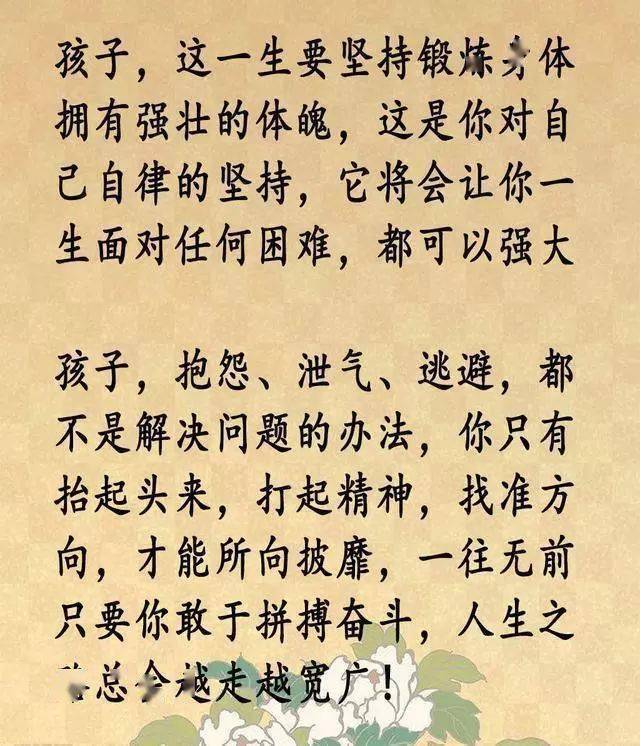 孩子，这一生要坚持锻炼身体
拥有强壮的体魄，这是你对自
己自律的坚持，它将会让你一
生面对任何困难，都可以强大
孩子，抱怨、泄气、逃避，都
不是解决问题的办法，你只有
抬起头来，打起精神，找准方
向，才能所向披靡，一往无前
只要你敢于拼搏奋斗，人生之
路总会越走越宽广！